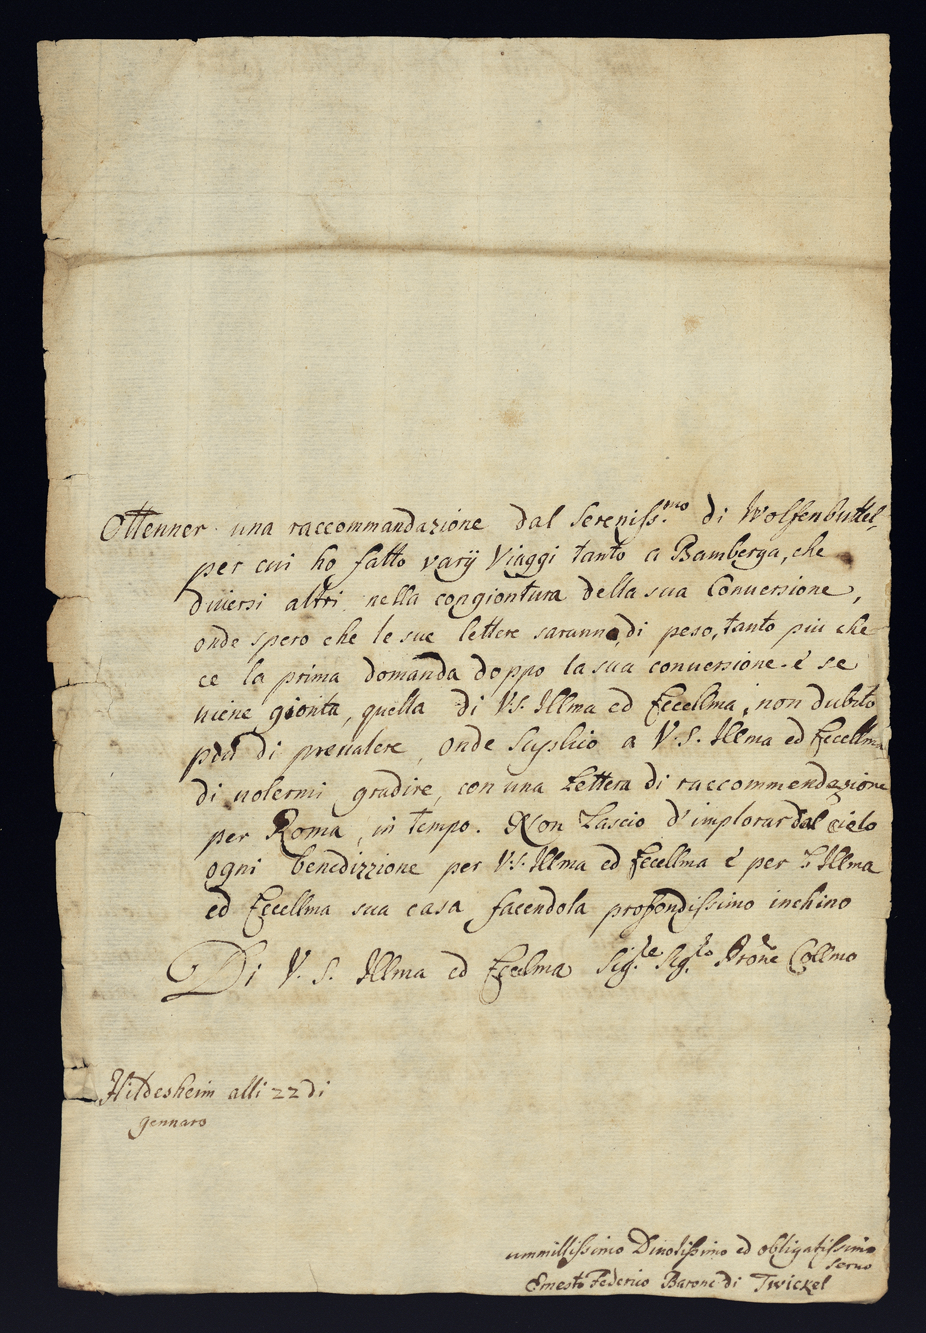 Ottenner una raccommandazione dal Sereniss.mo di Wolfenbuttel,
per cui ho fatto varij Viaggi tanto a Bamberga, che
diuersi altri nella congiontura della sua Conuersione,
onde spero che le sue lettere saranno di peso, tanto piu che
ce la prima domanda doppo la sua conuersione é se
uiene gionta, quella di V.S. Illma ed Eccellma, non dubito
piu di preualere, onde suplico a V.S. Illma ed Eccellma
di uolermi gradire, con una Lettera di raccommendazione
per Roma, in tempo. Non Lascio d'implorar dal cielo
ogni benedizzione per V.S. Illma ed Eccellma é per L'Illma
ed Eccellma sua casa facendola profondissimo inchino
Di V. S. Illma ed Eccelma Sig.re Sig.re Prone Collmo
Hildesheim alli 22 di
gennaro
ummillissimo Diuotissimo ed obligatissimo
seruo
Ernesto Federico Barone di Twickel